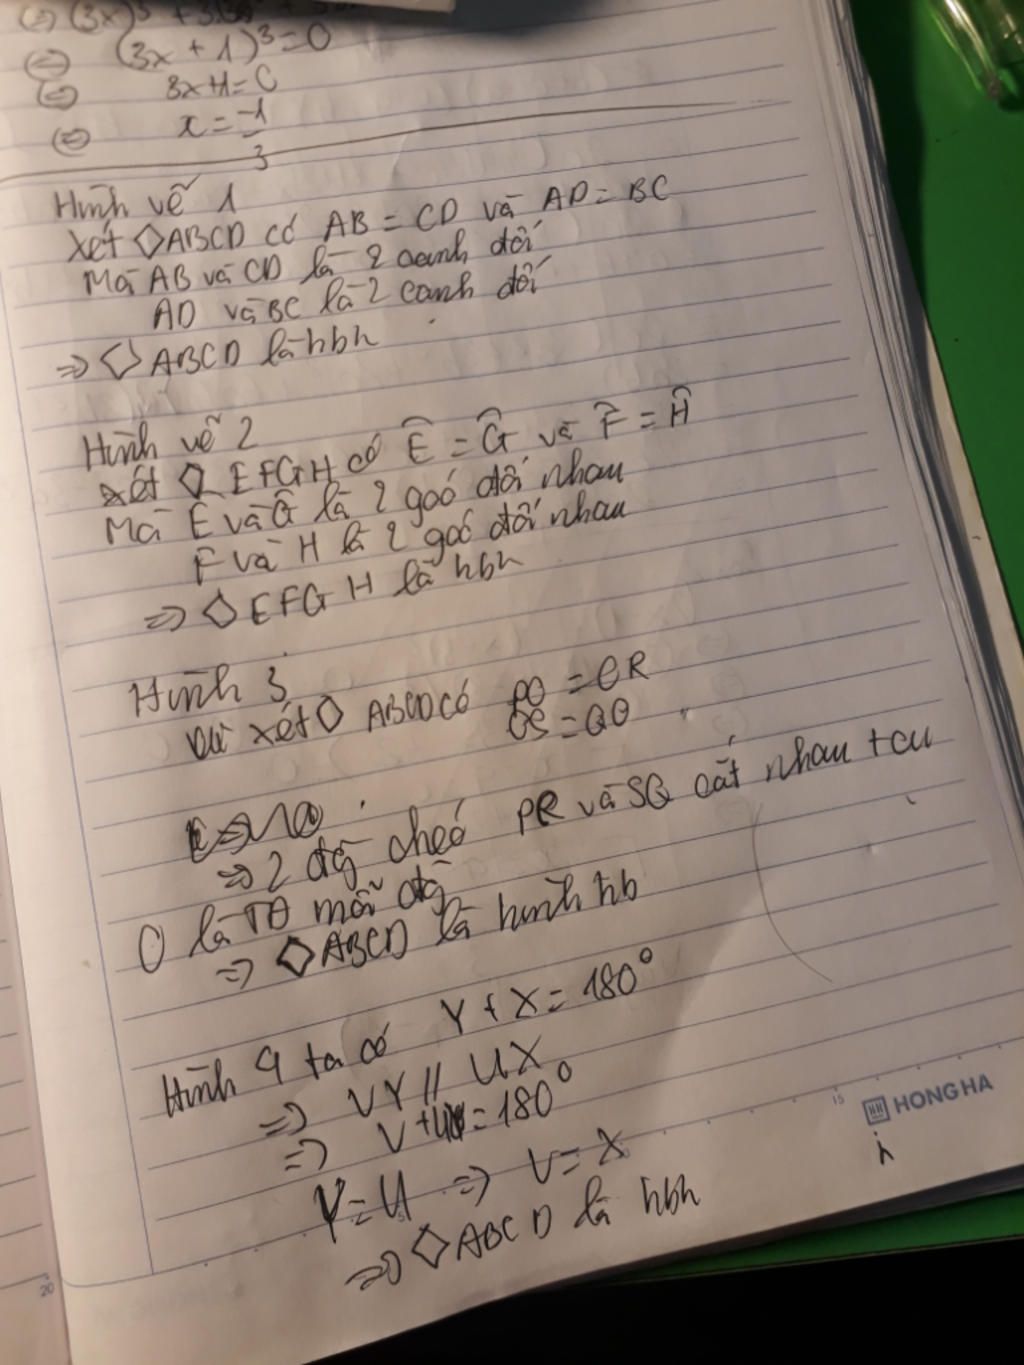 (3x)³ + 3.(3x)²
⇔ (3x + 1)³ = 0
⇔ 3x+1 = 0
⇔ x = -1/3
Hình vẽ 1
Xét ◇ABCD có AB = CD và AD = BC
Mà AB và CD là 2 cạnh đối
AD và BC là 2 cạnh đối
⇒ ◇ ABCD là hbh
Hình vẽ 2
xét ◇ EFGH có Ê = Ĝ và F̂ = Ĥ
Mà Ê và Ĝ là 2 goó đối nhau
F và H là 2 goó đối nhau
⇒ ◇ EFGH là hbh
Hình 3
xét ◇ ABCD có PO = OR
OS = QO
⇒ 2 đg cheó PR và SQ cắt nhau tại
O là TĐ mỗi đg
⇒ ◇ABCD là hình hb
Hình 4 ta có Y + X = 180°
⇒ VY // UX
⇒ V + U = 180°
Y = U ⇒ V = X
⇒ ◇ABCD là hbh
HONG HA
15
20